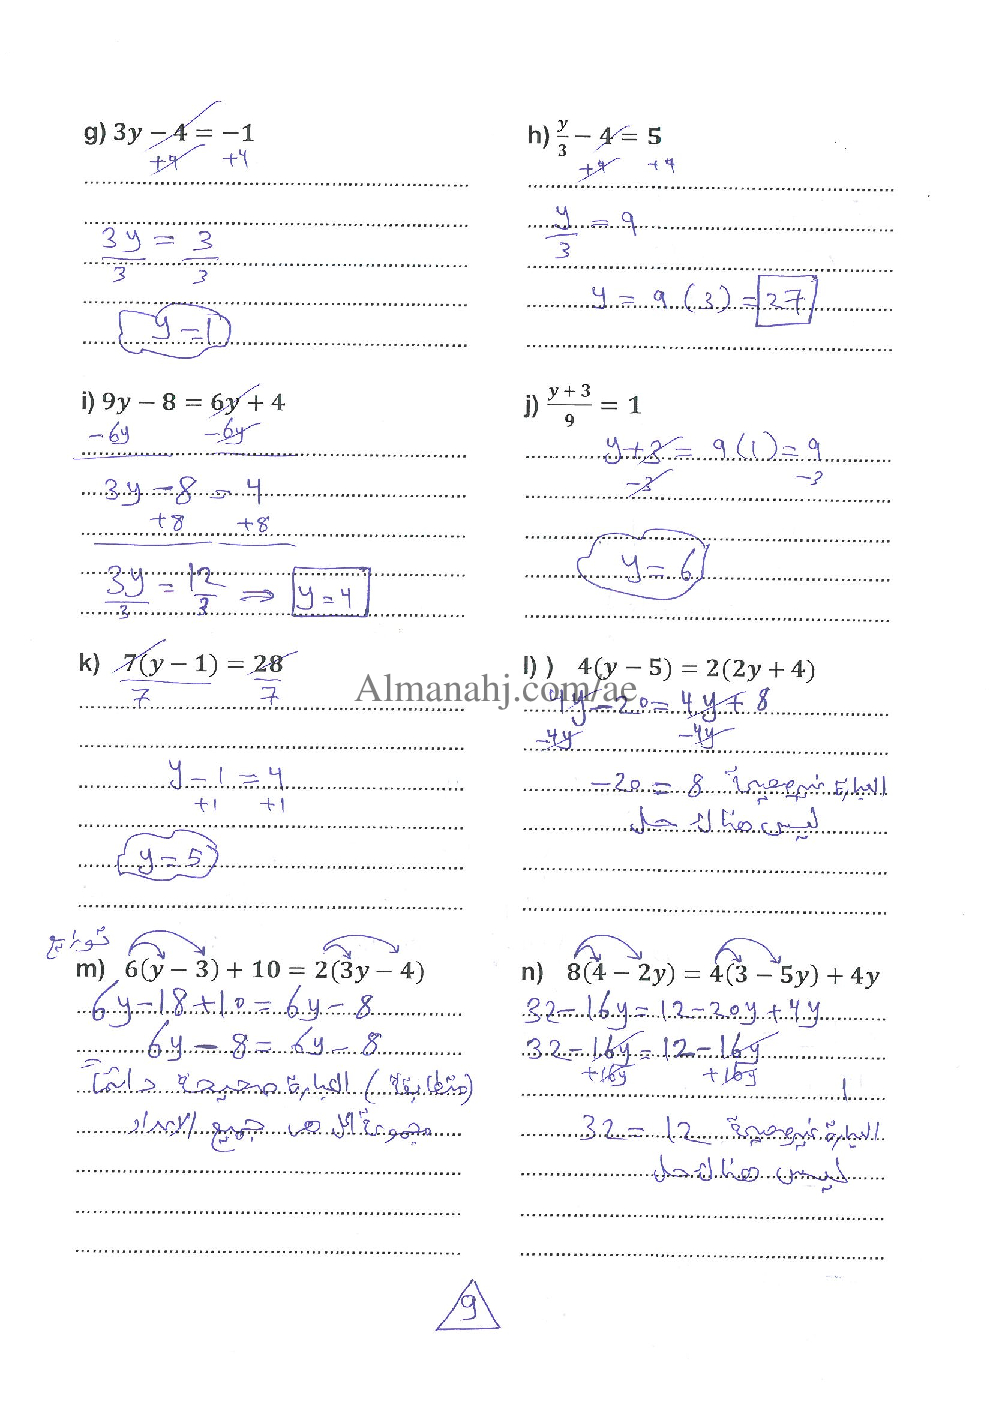 g) 3y − 4 = −1
+4 +4
3y = 3
3 3
y = 1
h) y/3 − 4 = 5
+4 +4
y/3 = 9
y = 9 (3) = 27
i) 9y − 8 = 6y + 4
−6y −6y
3y − 8 = 4
+8 +8
3y/3 = 12/3 ⇒ y = 4
j) (y + 3)/9 = 1
y + 3 = 9 (1) = 9
−3 −3
y = 6
k) 7(y − 1) = 28
7 7
y − 1 = 4
+1 +1
y = 5
l) ) 4(y − 5) = 2(2y + 4)
Almanahj.com/ae
4y − 20 = 4y + 8
−4y −4y
−20 = 8 العبارة غير صحيحة
ليس هناك حل
توزيع
m) 6(y − 3) + 10 = 2(3y − 4)
6y − 18 + 10 = 6y − 8
6y − 8 = 6y − 8
(متطابقة) العبارة صحيحة دائماً
مجموعة الحل هي جميع الاعداد
n) 8(4 − 2y) = 4(3 − 5y) + 4y
32 − 16y = 12 − 20y + 4y
32 − 16y = 12 − 16y
+16y +16y
32 = 12 العبارة غير صحيحة
ليس هناك حل
9